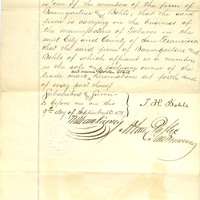 is one of the members of the firm of
Baumgarten & Bohls, that the said
firm is carrying on the business of
the manufacture of Tobacco in the
said City and County of San Francisco
that the said firm of Baumgarten &
Bohls of which affiant is a member
is the sole and exclusive owner of the
trade mark
set forth and
of every part thereof
Subscribed & sworn
to before me on this
9th day of September A.D. 1879
J. H. Bohls